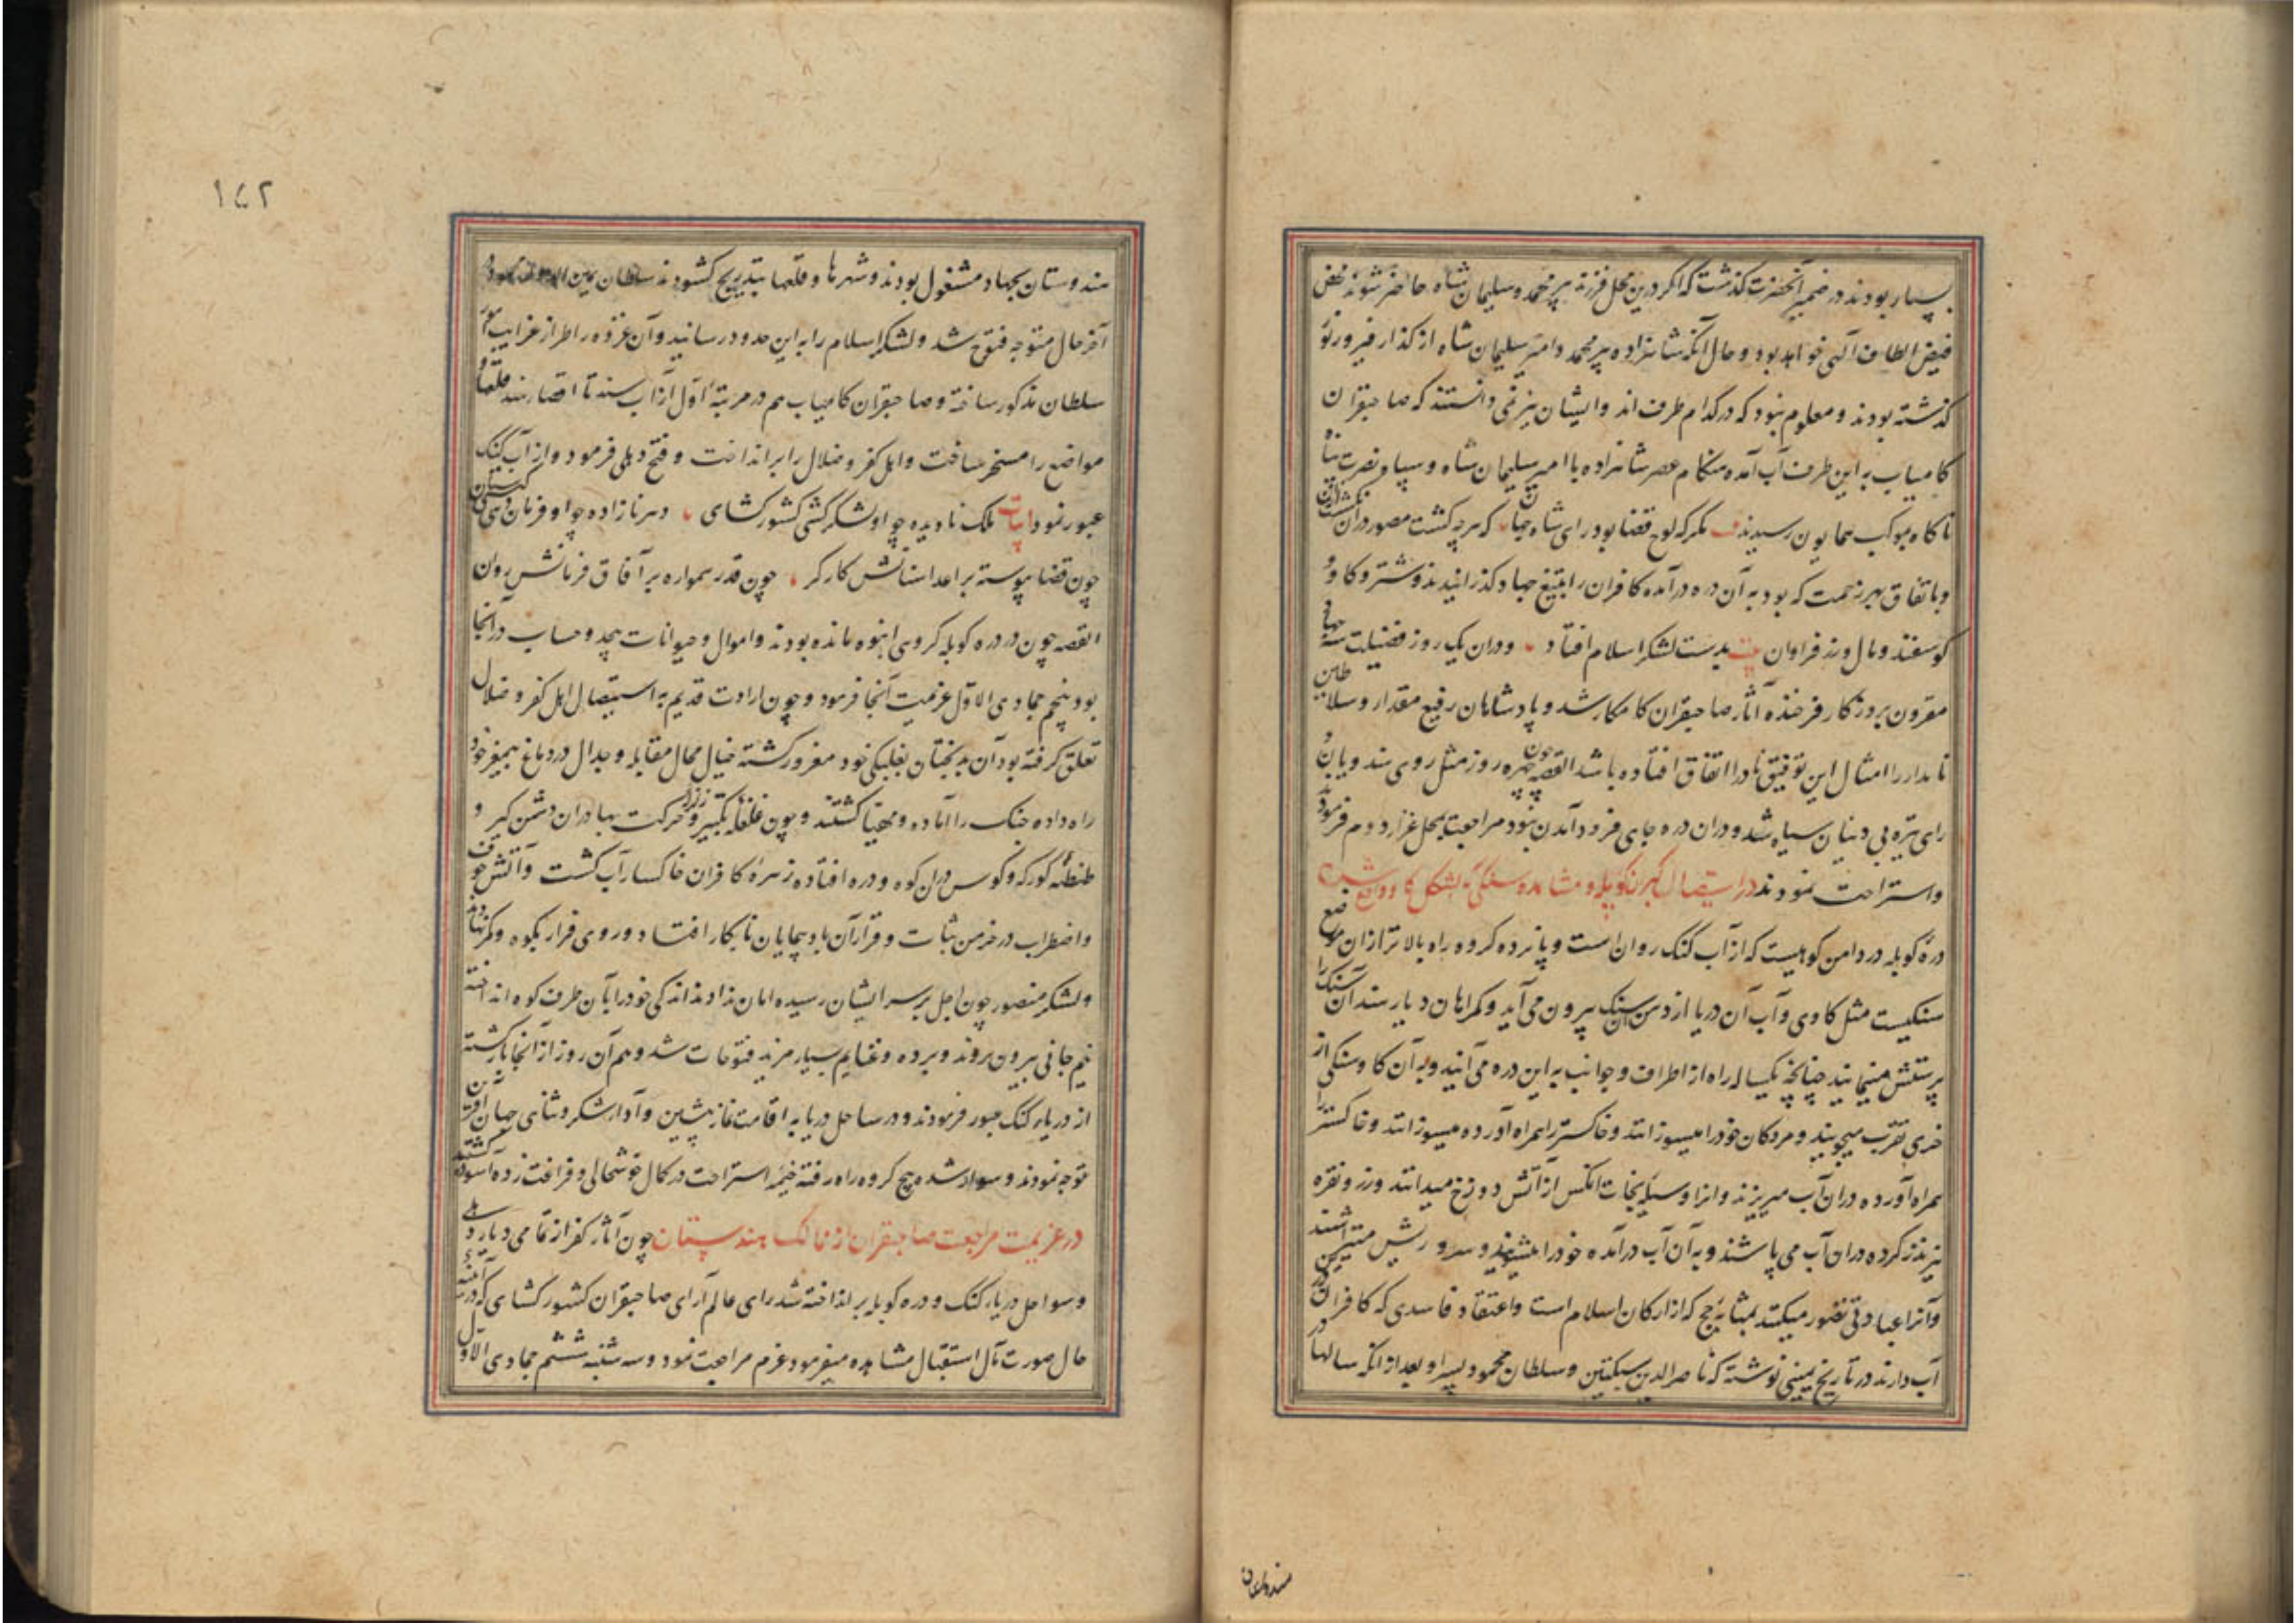 بسیار بودند در ضمیر آنحضرت کذشت که اکر درین محل فرزند پیر محمد و سلیمان شاه حاضر شوند محض
فیض الطاف الهی خواهد بود و حال آنکه شاهزاده پیر محمد و امیر سلیمان شاه از کذار فیروز تور
کذشته بودند و معلوم نبود که در کدام طرف اند و ایشان نیز نمی دانستند که صاحبقران
کامیاب به این طرف آب آمده هنکام عصر شاهزاده با امیر سلیمان شاه و سپاه نصرت پناه
ناکاه بموکب همایون رسیدند مکر که لوح قضا بود رای شاه جهان که هرچه کشت مصور در آن
و باتفاق بهر زحمت که بود به آن دره درآمده کافران را بتیغ جهاد کذرانیدند و شتر و کاو و
کوسفند و مال و زر فراوان بدست لشکر اسلام افتاد و دران یک روز فضیلت سه جهاد
مقرون بروزکار فرخنده آثار صاحبقران کامکار شد و پادشاهان رفیع مقدار و سلاطین
نامدار را امثال این توفیق نادرا اتفاق افتاده باشد القصه چون چهره روز مثل روی هندویان و
رای تیره بی دینان سیاه شد و دران دره جای فرود آمدن نبود مراجعت بمحل غزار دوم فرمودند
و استراحت نمودند در استیصال کبران کوپله و مشاهده سنکی بشکل کاو
دره کوپله در دامن کوهیست که از آب کنک روان است و پانزده کروه راه بالاتر ازان موضع
سنکیست مثل کاوی و آب آن دریا از دهن آن سنک بیرون می آید و کمراهان دیار هند آن سنک را
پرستش مینمایند چنانچه یکساله راه از اطراف و جوانب به این دره می آیند و به آن کاو سنکی از
خری تقرب میجویند و مردکان خود را میسوزانند و خاکستر را همراه آورده میسوزانند و خاکستر را
همراه آورده دران آب میریزند و انرا وسیله نجات انکس از آتش دوزخ میدانند و زر و نقره
نیز نذر کرده دران آب می پاشند و به آن آب درآمده خود را میشویند و سر و ریش
و آنرا عبادتی تصور میکنند بمثابه حج که از ارکان اسلام است و اعتقاد فاسدی که کافران در
آب دارند در تاریخ یمینی نوشته که ناصرالدین سبکتین و سلطان محمود پسر او بعد از انکه سالها در
هندوستان
١٤٢
هندوستان بجهاد مشغول بودند و شهرها و قلعها بتدریج کشودند سلطان یمین
آخر حال متوجه فتوح شد و لشکر اسلام را به این حدود رسانید و آن غزوه را طراز غرایب
سلطان مذکور ساخته و صاحبقران کامیاب هم در مرتبه اول از آب سند تا اقصاء هند قلعها و
مواضع را مسخر ساخت و اهل کفر و ضلال را برانداخت و فتح دهلی فرمود و از آب کنک
عبور نمود ابیات ملک نادیده چو او لشکرکشی کشورکشای دهر نازاده چو او فرمان دهی کیتی ستان
چون قضا پیوسته بر اعدا سنانش کارکر چون قدر همواره بر آفاق فرمانش روان
القصه چون در دره کوپله کروهی انبوه مانده بودند و اموال و حیوانات بیحد و حساب درآنجا
بود پنجم جمادی الاول عزیمت آنجا فرمود و چون ارادت قدیم به استیصال اهل کفر و ضلال
تعلق کرفته بود آن بدبختان بغلبکی خود مغرور کشته خیال محال مقابله و جدال در دماغ بیمغز خود
راه داده جنک را آماده و مهیا کشتند و چون غلغله تکبیر و حرکت بهادران دشمن کیر و
طنطنه کورکه و کوس دران کوه و دره افتاده زهره کافران خاکسار آب کشت و آتش خوف
و اضطراب در خرمن ثبات و قرار آن بادپیمایان نابکار افتاد و روی فرار بکوه و کمر نهادند
و لشکر منصور چون اجل بر سر ایشان رسیده امان ندادند اندکی خود را بآن طرف کوه انداخته
نیم جانی بیرون بردند و برده و غنایم بسیار مزید فتوحات شد و هم آن روز از آنجا بازکشته
از دریاء کنک عبور فرمودند و در ساحل دریا به اقامت نماز پیشین و آداء شکر و ثنای جهان آفرین
توجه نمودند و سوار شده پنج کروه راه رفته خیمه استراحت در کمال خوشحالی و فراغت زده آسوده کشتند
در عزیمت مراجعت صاحبقران از ممالک هندوستان چون آثار کفر از تمامی دیار دهلی
و سواحل دریاء کنک و دره کوپله برانداخته شد رای عالم آرای صاحبقران کشورکشای که در آینه
حال صورت مآل استقبال مشاهده میفرمود عزم مراجعت نمود و سه شنبه ششم جمادی الاول